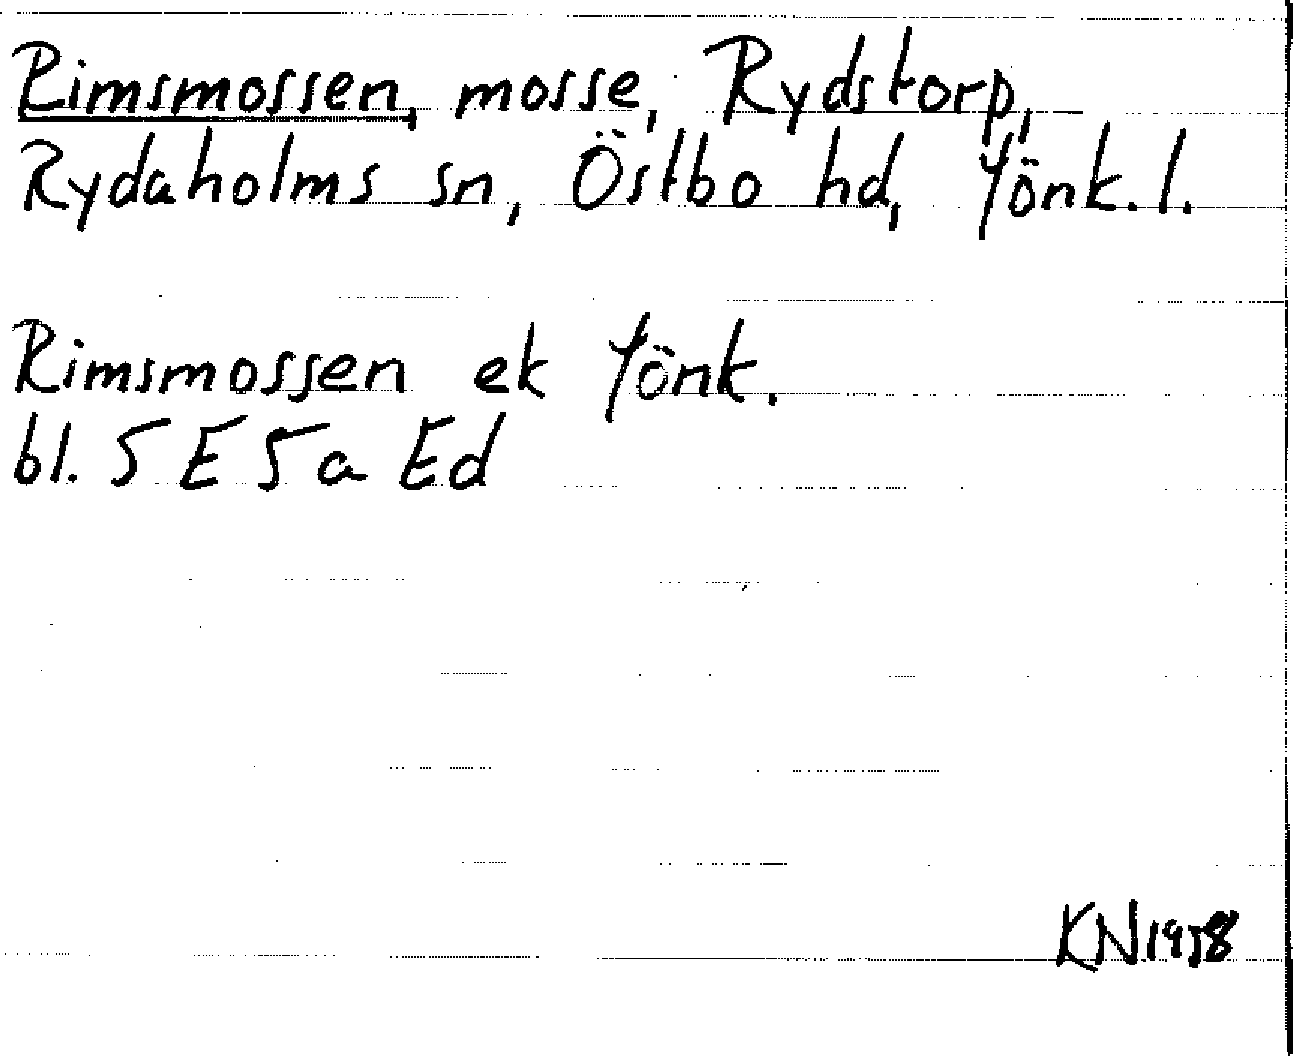 Rimsmossen, mosse, Rydstorp,
Rydaholms sn, Östbo hd, Jönk. l.
Rimsmossen ek Jönk.
bl. 5 E 5 a Ed
KN 1958